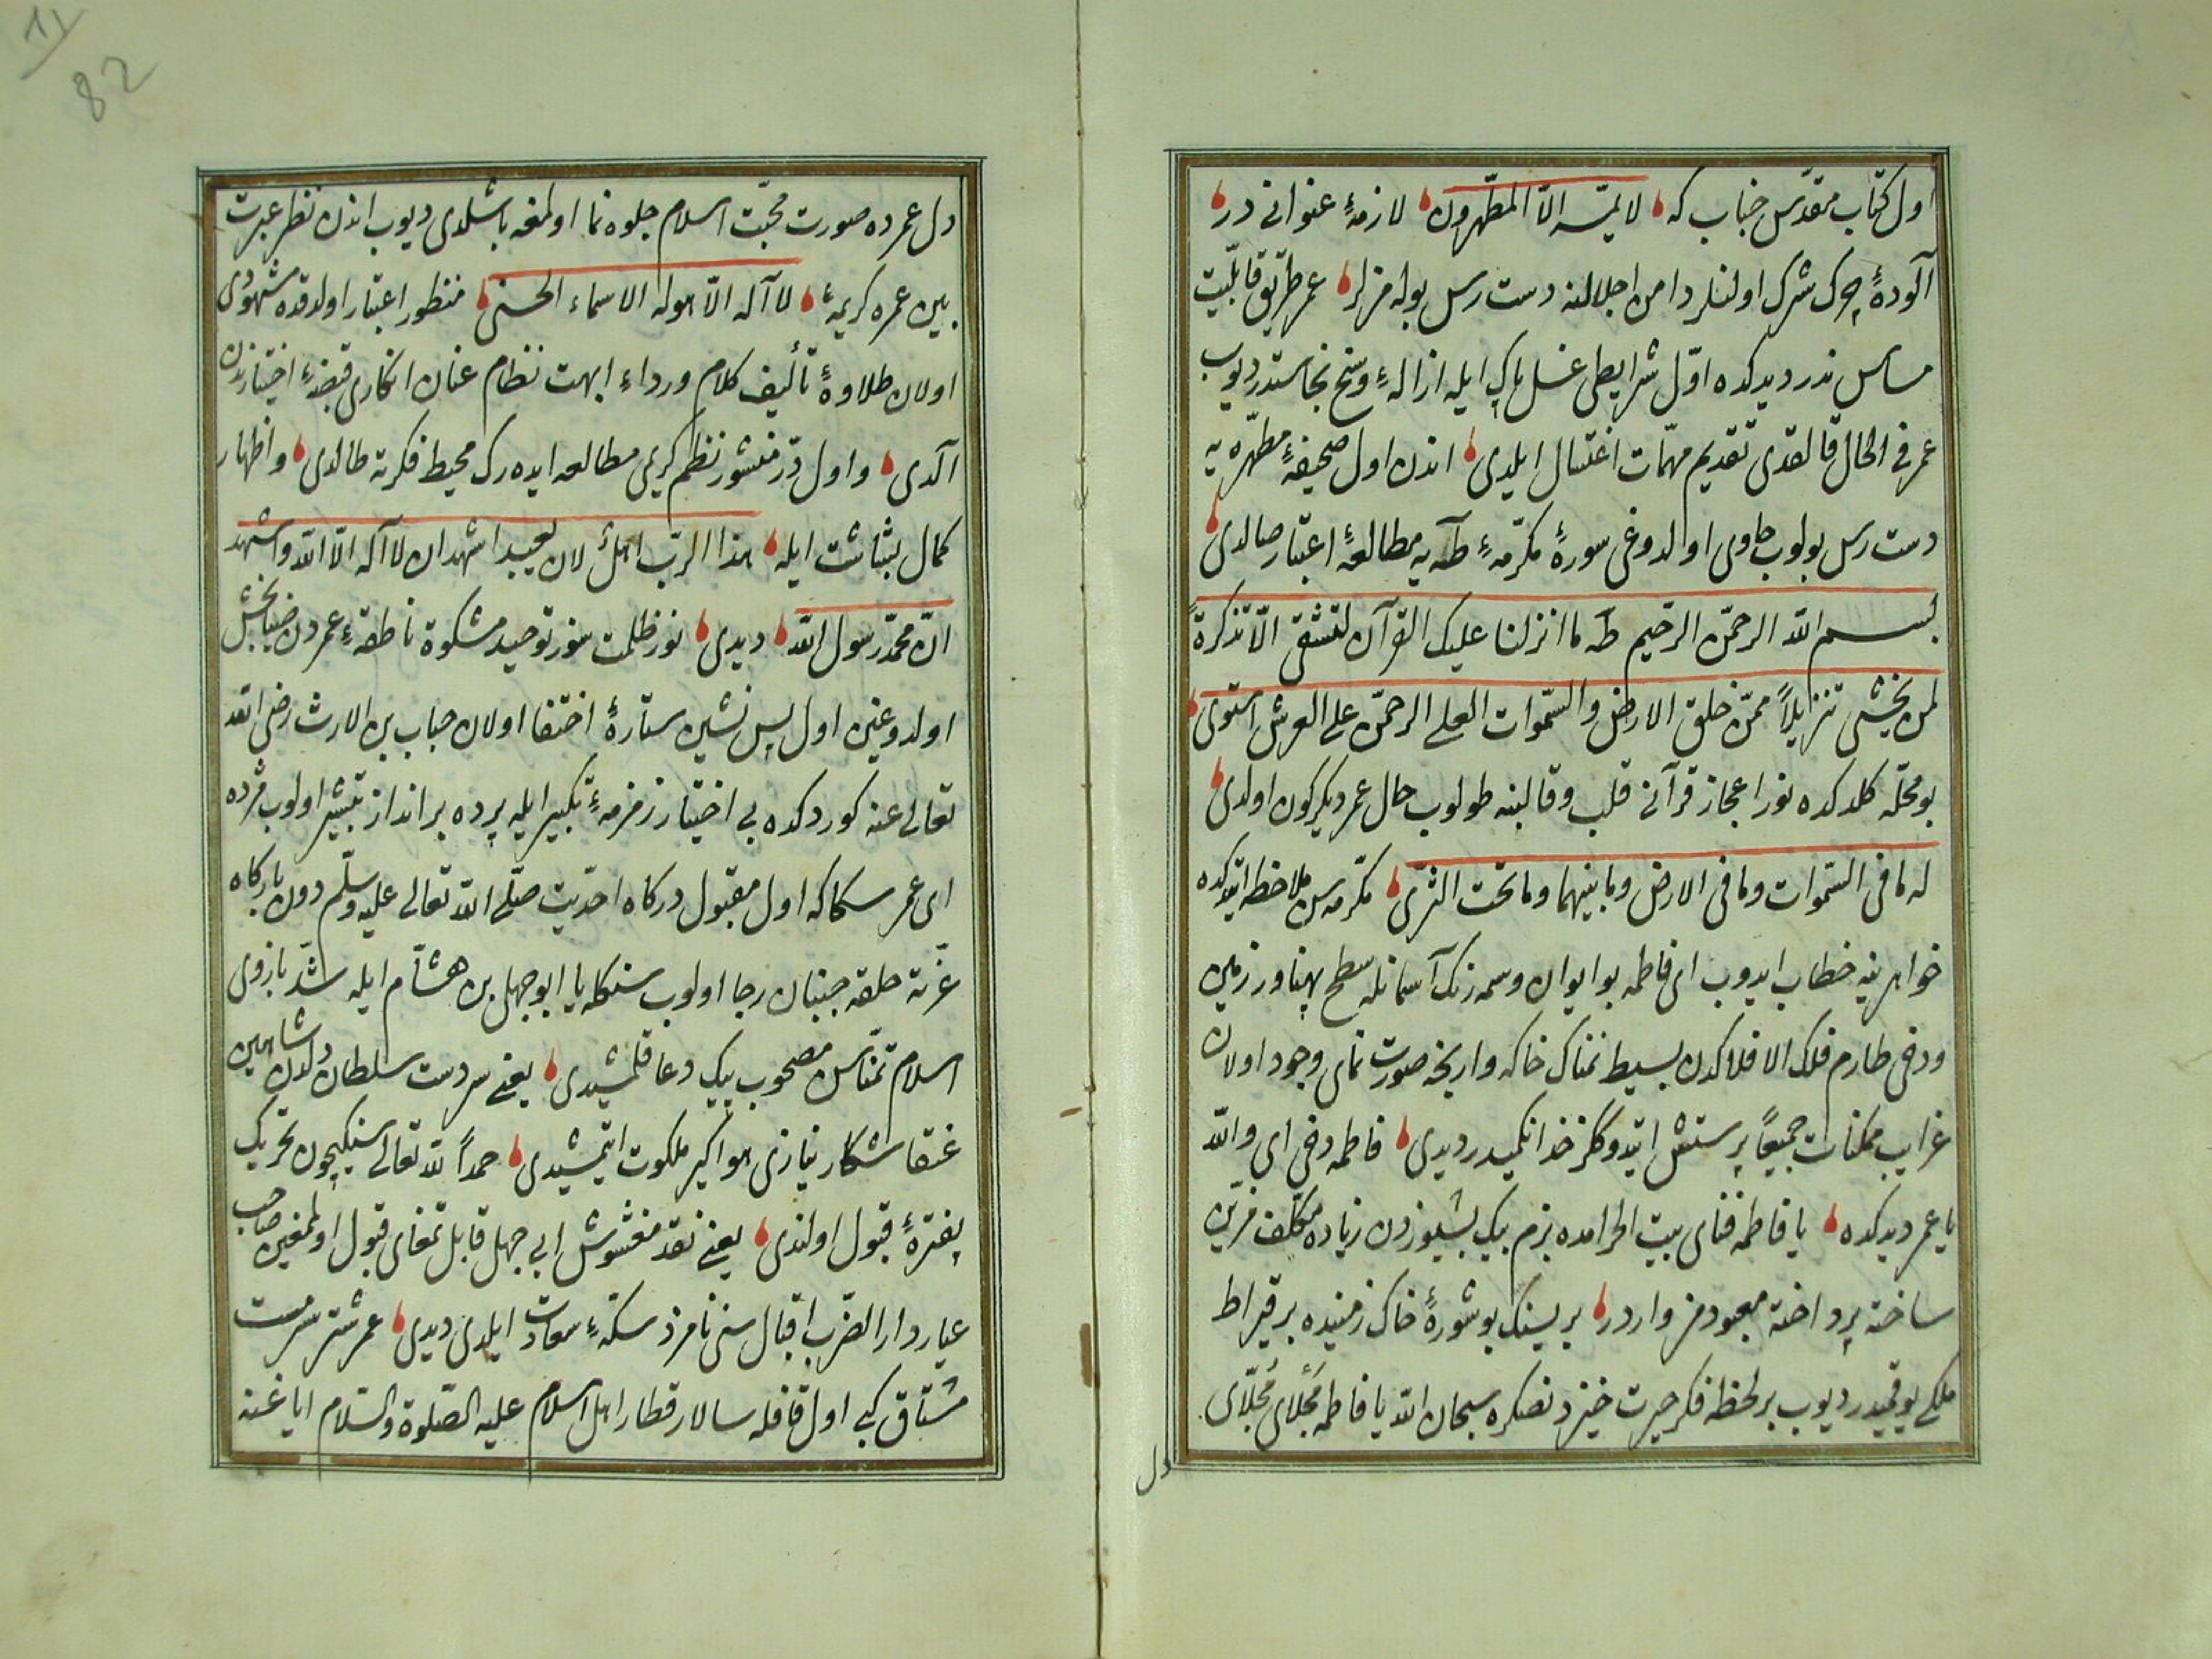 اول كتاب مقدّس جناب كه لا يمسّه الّا المطّهرون لازمهٔ عنوانى در
آلودهٔ چرك شرك اولنلر دامن اجلالنه دست رس بوله مزلر عمر طريق قابليّت
مساس ندر ديدكده اوّل شرايطى غسل پاك ايله ازالهٔ وسخ نجاستدر ديوب
عمر فى الحال قالقدى تقديم مهمّات اغتسال ايلدى اندن اول صحيفهٔ مطهّره يه
دست رس بولوب حاوى اولدوغى سورهٔ مكرّمهٔ طه يه مطالعهٔ اعتبار صالدى
بسم الله الرحمن الرحيم طه ما انزلنا عليك القرآن لتشقى الّا تذكرةً
لمن يخشى تنزيلاً ممّن خلق الارض والسّموات العلى الرحمن على العرش استوى
بو محلّه كلدكده نور اعجاز قرآنى قلب وقالبنه طولوب حال عمر ديكركون اولدى
له ما فى السّموات وما فى الارض وما بينهما وما تحت الثرى مكرّمه سن ملاحظه ايتدكده
خواهرينه خطاب ايدوب اى فاطمه بو ايوان وسمه رنك آسمانله سطح پهناور زمين
ودخى طارم فلك الافلاكدن بسيط نمناك خاكه وارنجه صورت نماى وجود اولان
غرايب ممكنات جميعاً پرستش ايتدوككز خدانكميدر ديدى فاطمه دخى اى والله
يا عمر ديدكده يا فاطمه فناى بيت الحرامده بزم بيك بشيوزدن زياده مكلّف مزيّن
ساخته پرداخته معبودمز واردر بريسنك بو شورهٔ خاك زمينده بر قيراط
ملكى يوقميدر ديوب بر لحظه فكر حيرت خيزدنصكره سبحان الله يا فاطمه مجلّاى
دل
11
82
دل عمرده صورت محبّت اسلام جلوه نما اولمغه باشلدى ديوب اندن نظر عبرت
بين عمره كريمهٔ لا آله الّا هو له الاسماء الحسنى منظور اعتبار اولدقده مشهودى
اولان طلاوهٔ تأليف كلام ورداء ابهت نظام عنان انكارى قبضهٔ اختيارندن
آلدى واول درّ منثور نظم كريمى مطالعه ايده رك محيط فكرته طالدى واظهار
كمال بشاشت ايله هذا الربّ اهلٌ لان يعبد اشهد ان لا آله الّا الله واشهد
انّ محمّد رسول الله ديدى نور ظلمت سوز توحيد مشكوة ناطقهٔ عمردن ضيابخش
اولدوغين اول پس نشين ستارهٔ اختفا اولان حباب بن الارث رضى الله
تعالى عنه كوردكده بى اختيار زمزمهٔ تكبير ايله پرده برانداز تبشير اولوب مژده
اى عمر سكاكه اول مقبول دركاه احديّت صلّى الله تعالى عليه وسلّم دون باركاه
عزّته حلقه جنبان رجا اولوب سنكله يا ابو جهل بن هشام ايله شدّ بازوى
اسلام تمنّاسن مصحوب پيك دعا قلمشيدى يعنى سر دست سلطان دلدن شاهين
عنقا شكار نيازى هواكير ملكوت ايتمشيدى حمداً لله تعالى سنكيچون تحريك
پنجرهٔ قبول اولندى يعنى نقد مغشوش ابى جهل قابل تمغاى قبول اولمغين صاحب
عيار دار الضّرب اقبال سنى نامزد سكّهٔ سعادت ايلدى ديدى عمر شتر سرمست
مشتاق كبى اول قافله سالار قطار اهل اسلام عليه الصّلوة والسّلام ايا غنه